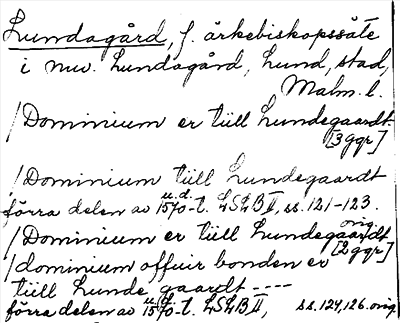 Lundagård, f. ärkebiskopssäte
i nuv. Lundagård, Lund, stad,
Malm. l.
/Dominium er tüll Lundegaardt
[3 ggr]
/Dominium tüll Lundegaardt
förra delen av 1570-t. u.d. LSLB II, ss. 121-123.
/Dominium er tüll Lundegaardt
orig. [2 ggr]
/dominium offuir bonden er
tüll Lunde gaardt ----
förra delen av 1570-t. u.d. LSLB II, ss. 124, 126. orig.